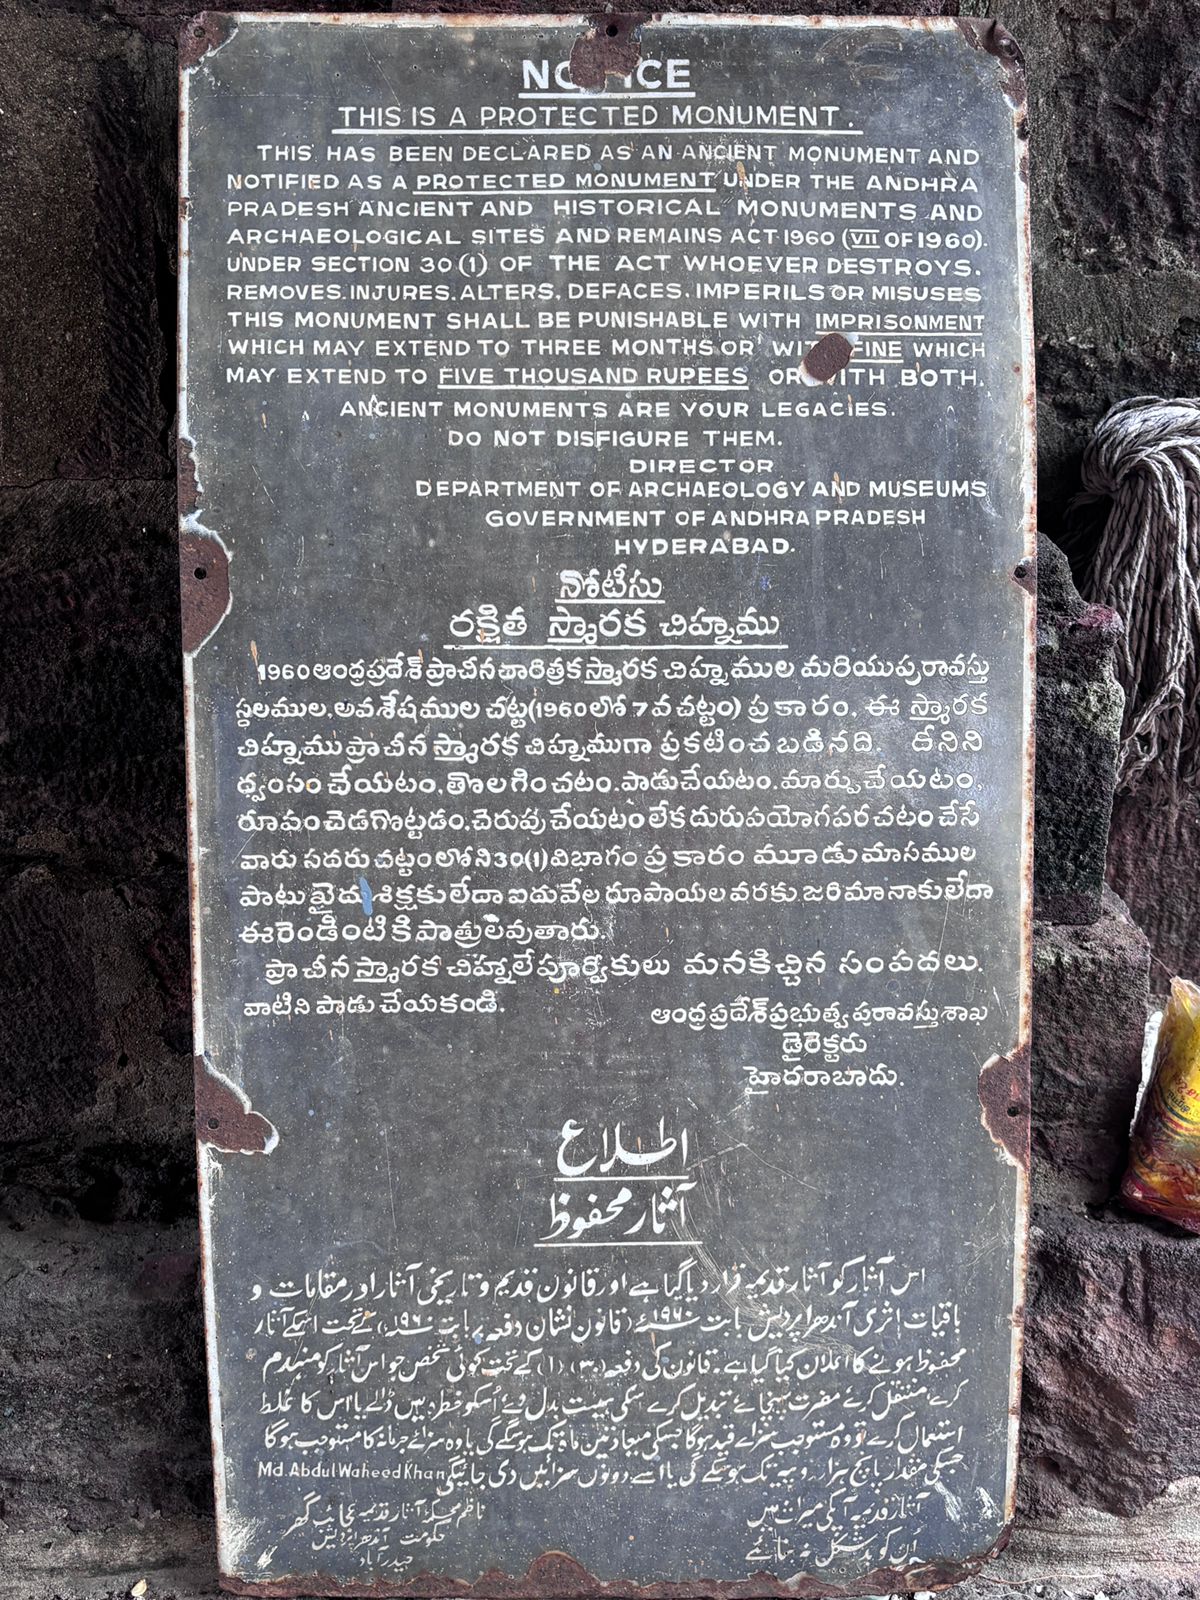 NOTICE
THIS IS A PROTECTED MONUMENT.
THIS HAS BEEN DECLARED AS AN ANCIENT MONUMENT AND
NOTIFIED AS A PROTECTED MONUMENT UNDER THE ANDHRA
PRADESH ANCIENT AND HISTORICAL MONUMENTS AND
ARCHAEOLOGICAL SITES AND REMAINS ACT 1960 (VII OF 1960).
UNDER SECTION 30 (1) OF THE ACT WHOEVER DESTROYS.
REMOVES. INJURES. ALTERS, DEFACES. IMPERILS OR MISUSES
THIS MONUMENT SHALL BE PUNISHABLE WITH IMPRISONMENT
WHICH MAY EXTEND TO THREE MONTHS OR WITH FINE WHICH
MAY EXTEND TO FIVE THOUSAND RUPEES OR WITH BOTH.
ANCIENT MONUMENTS ARE YOUR LEGACIES.
DO NOT DISFIGURE THEM.
DIRECTOR
DEPARTMENT OF ARCHAEOLOGY AND MUSEUMS
GOVERNMENT OF ANDHRA PRADESH
HYDERABAD.
నోటీసు
రక్షిత స్మారక చిహ్నము
1960 ఆంధ్రప్రదేశ్ ప్రాచీన చారిత్రక స్మారక చిహ్నముల మరియు పురావస్తు
స్థలముల, అవశేషముల చట్ట (1960 లోో 7 వ చట్టం) ప్రకారం, ఈ స్మారక
చిహ్నము ప్రాచీన స్మారక చిహ్నముగా ప్రకటించబడినది. దీనిని
ధ్వంసం చేయటం, తొలగించటం. పాడుచేయటం. మార్పుచేయటం,
రూపం చెడగొట్టడం. చెరుపు చేయటం లేక దురుపయోగపరచటం చేసే
వారు సదరు చట్టంలోని 30(1) విభాగం ప్రకారం మూడు మాసముల
పాటు ఖైదు శిక్షకు లేదా ఐదువేల రూపాయల వరకు జరిమానాకు లేదా
ఈ రెండింటికి పాత్రులవుతారు.
ప్రాచీన స్మారక చిహ్నాలే పూర్వీకులు మనకిచ్చిన సంపదలు.
వాటిని పాడు చేయకండి.
ఆంధ్రప్రదేశ్ ప్రభుత్వ పురావస్తు శాఖ
డైరెక్టరు
హైదరాబాదు.
اطلاع
آثار محفوظ
اس آثار کو آثار قدیمہ قرار دیا گیا ہے اور قانون قدیم و تاریخی آثار اور مقامات و
باقیات اثری آندھرا پردیش بابت ۱۹۶۰ء (قانون نشان دفعہ ۷ بابت ۱۹۶۰ء) کے تحت اسکے آثار
محفوظ ہونے کا اعلان کیا گیا ہے۔ قانون کی دفعہ (۳۰) (۱) کے تحت کوئی شخص جو اس آثار کو منہدم
کرے، منتقل کرے مضرت پہنچائے تبدیل کرے اسکی ہیئت بدل دے اُسکو خطرہ میں ڈالے یا اس کا غلط
استعمال کرے تو وہ مستوجب سزائے قید ہوگا جسکی میعاد تین ماہ تک ہوسکے گی یا وہ سزائے جرمانہ کا مستوجب ہوگا
جسکی مقدار پانچ ہزار روپیہ تک ہوسکے گی یا اسے دونوں سزائیں دی جائینگی
Md. Abdul Waheed Khan
آثار قدیمہ آپکی میراث ہیں
اُن کو بدشکل نہ بنائیے
ناظم محکمہ آثار قدیمہ عجائب گھر
حکومت آندھرا پردیش
حیدرآباد